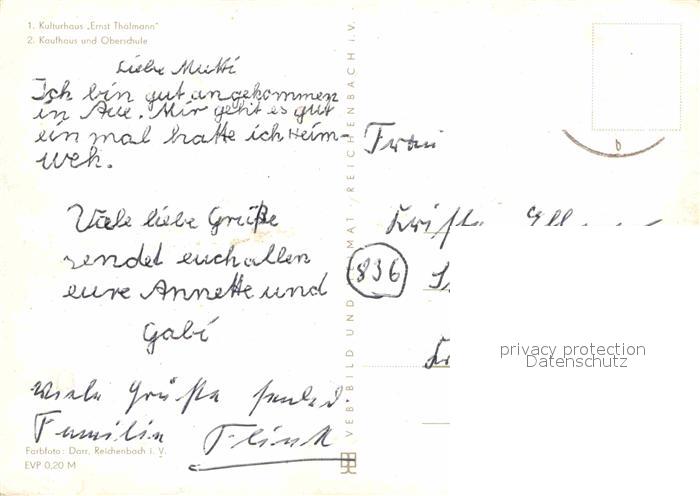 1. Kulturhaus „Ernst Thälmann"
2. Kaufhaus und Oberschule
Liebe Mutti
Ich bin gut angekommen
in Aue. Mir geht es gut
ein mal hatte ich Heim-
weh.
Viele liebe Grüße
sendet euch allen
eure Annette und
Gabi
Viele Grüße sendet
Familie Flink
Farbfoto: Darr, Reichenbach i. V.
EVP 0,20 M
VEB BILD UND HEIMAT REICHENBACH i. V.
Frau
836
privacy protection
Datenschutz